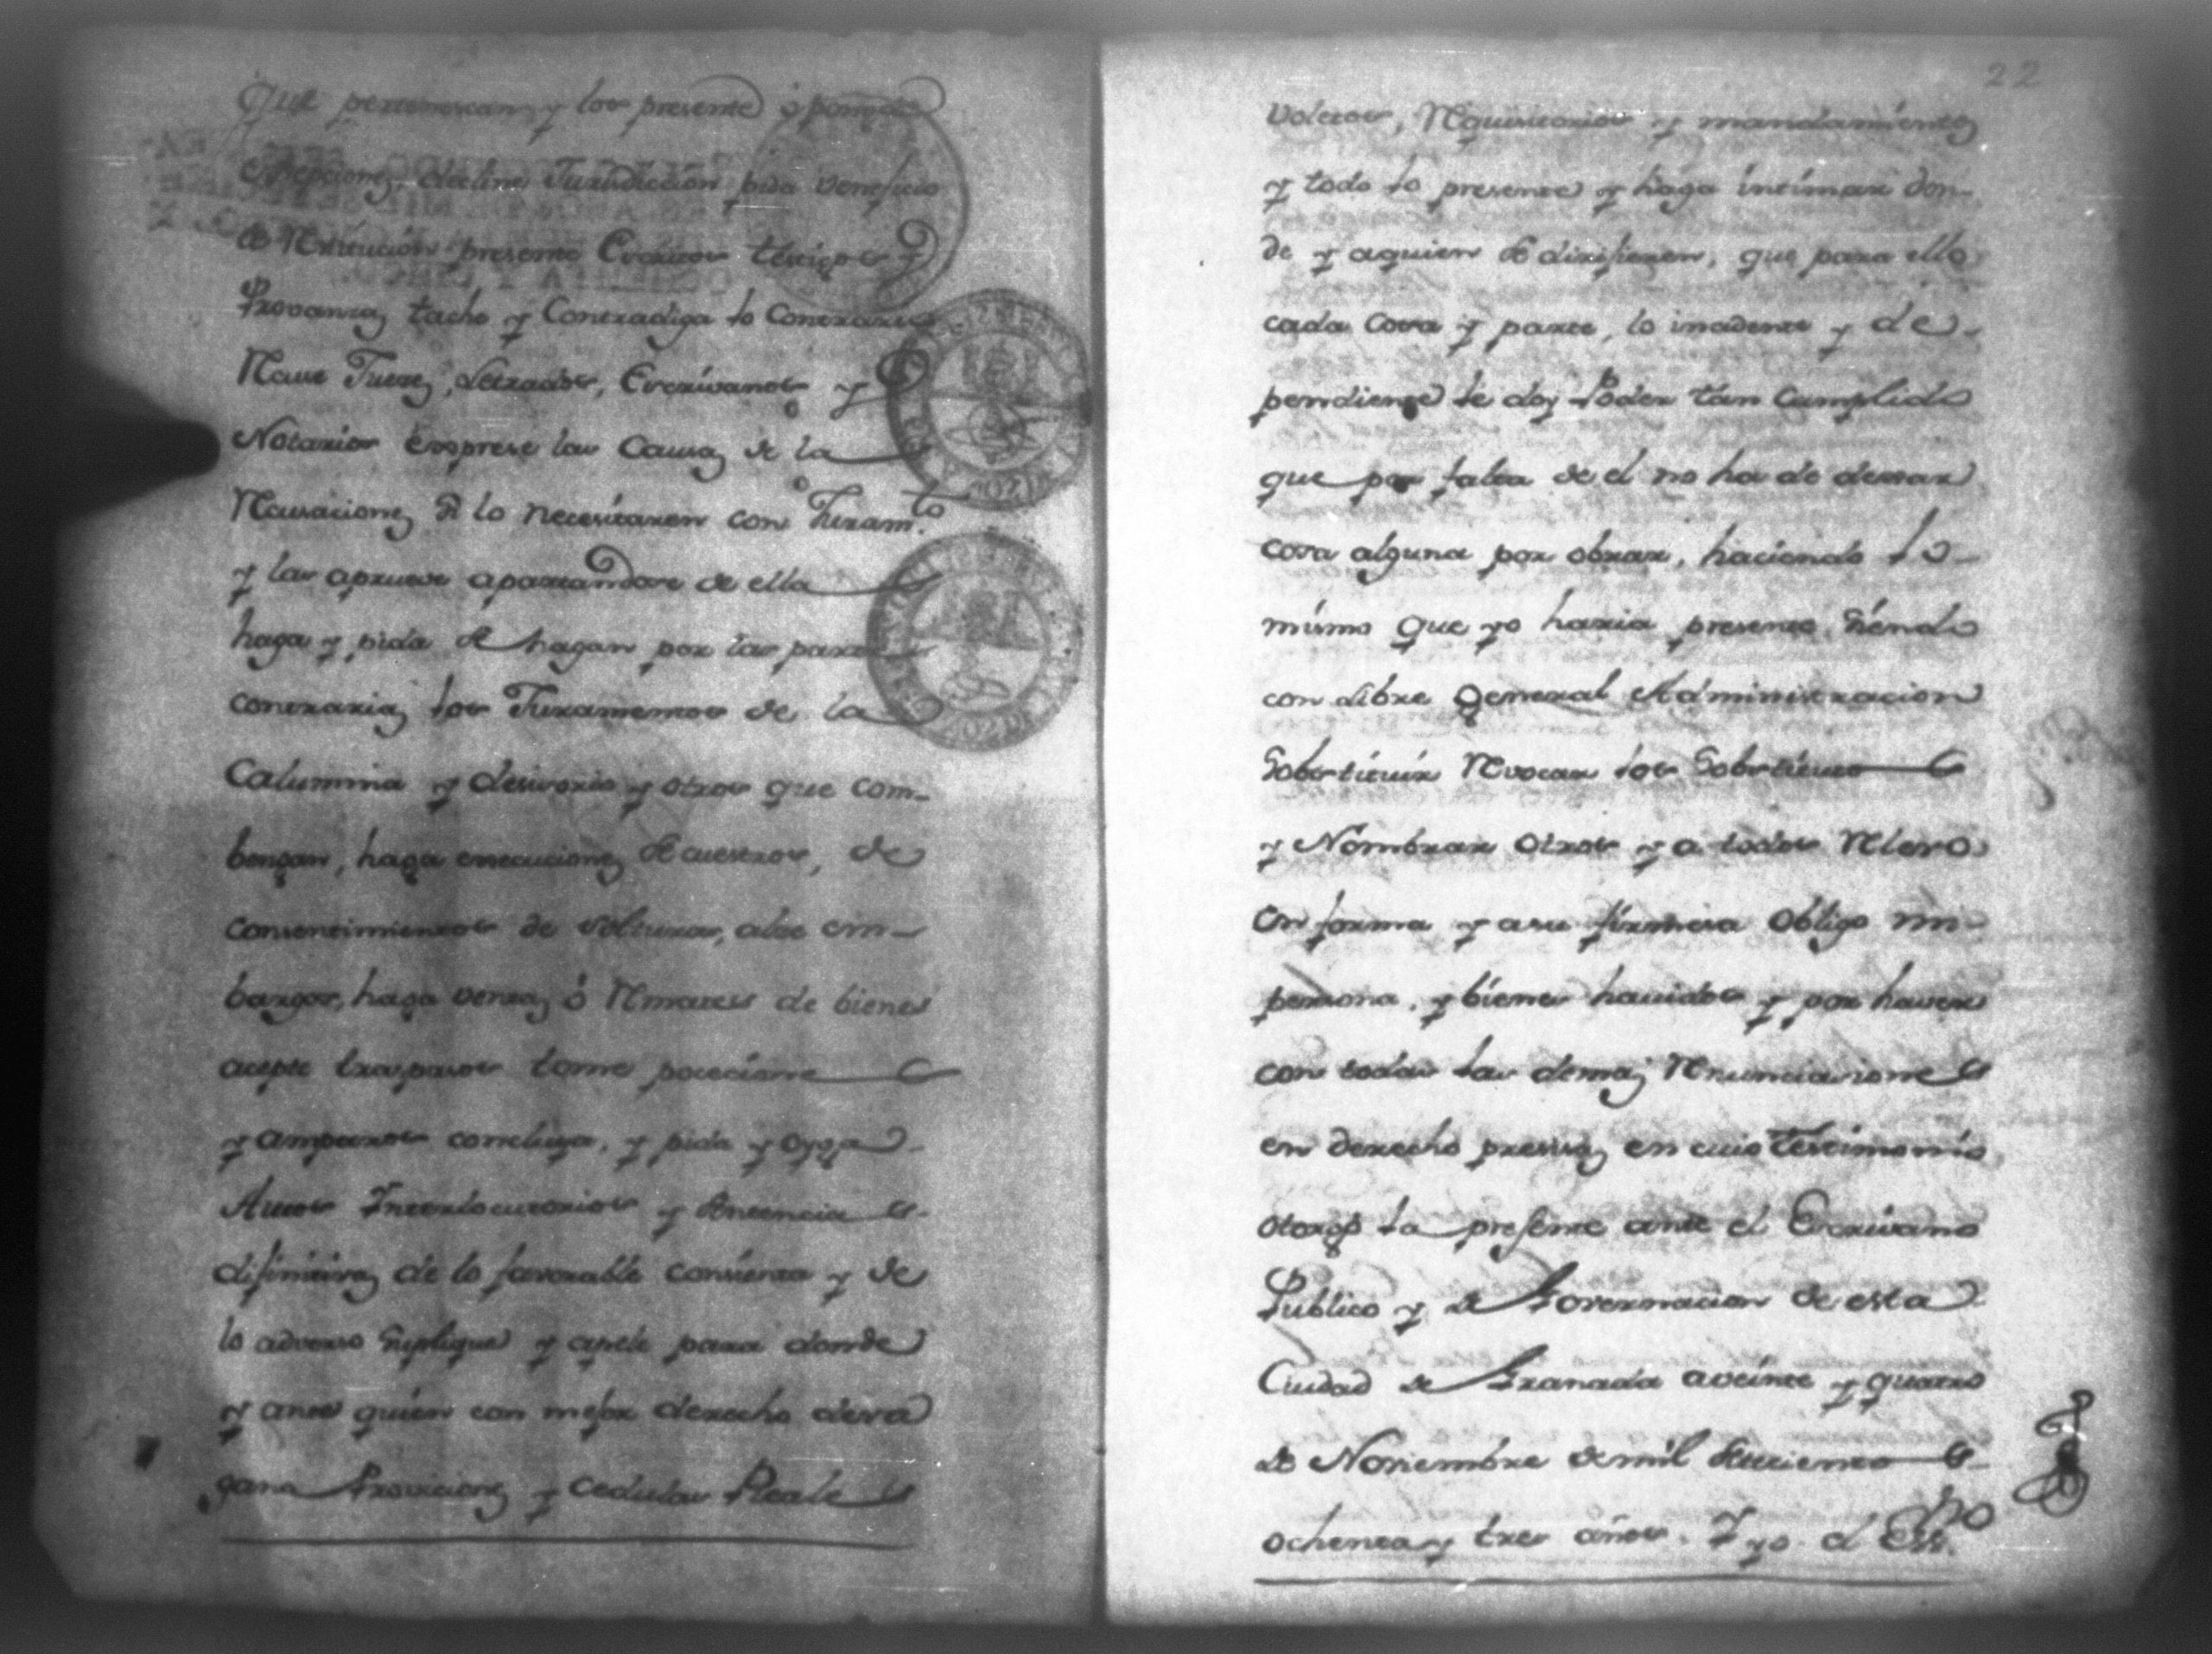 que pertenescan, y los presente ó ponga
excepciones, decline Jurisdiccion pida veneficio
de Restitucion presente Escritos testigos y
Provanzas tache y Contradiga lo Contrario
Recuse Jueses, Letrados, Escrivanos y
Notarios exsprese las Causas de la
Recusaciones si lo necesitaren con Juram.to
y las aprueve apartandose de ella
haga y pida se hagan por las partes
contrarias los Juramentos de la
Calumnia y desisorio y otros que com-
bengan, haga execuciones secuestros, de
consentimientos de solturas, alse em-
bargos, haga ventas ó Remates de bienes
acepte traspasos tome pocecione
y amparos concluya, y pida y oyga
Autos Interlocutorios y sentencias
difinitivas de lo favorable concienta y de
lo adverso suplique y apele para donde
y ante quien con mejor derecho deva
gana Proviciones y cedulas Reales
22
Voletos, Requisitorios y mandamientos
y todo lo presente y haga intimar don-
de y aquien se dirijieren, que para ello
cada Cosa y parte, lo insidente y de-
pendiente le doy Poder tan Cumplido
que por falta de el no ha de dexar
cosa alguna por obrar, haciendo lo
mismo que yo haria presente siendo
con Libre general Administracion
Sobstituir Revocar los Sobstitutos
y Nombrar Otros y a todos Relevo
en forma y a su firmesa Obligo mi
persona, y bienes havidos y por haver
con todas las demas Renunciaciones
en derecho presisas en cuio testimonio
otorgo la presente ante el Escrivano
Publico y de Governacion de esta
Ciudad de Granada a veinte y quatro
de Noviembre de mil setecientos
ochenta y tres años. Y yo el Ess.no